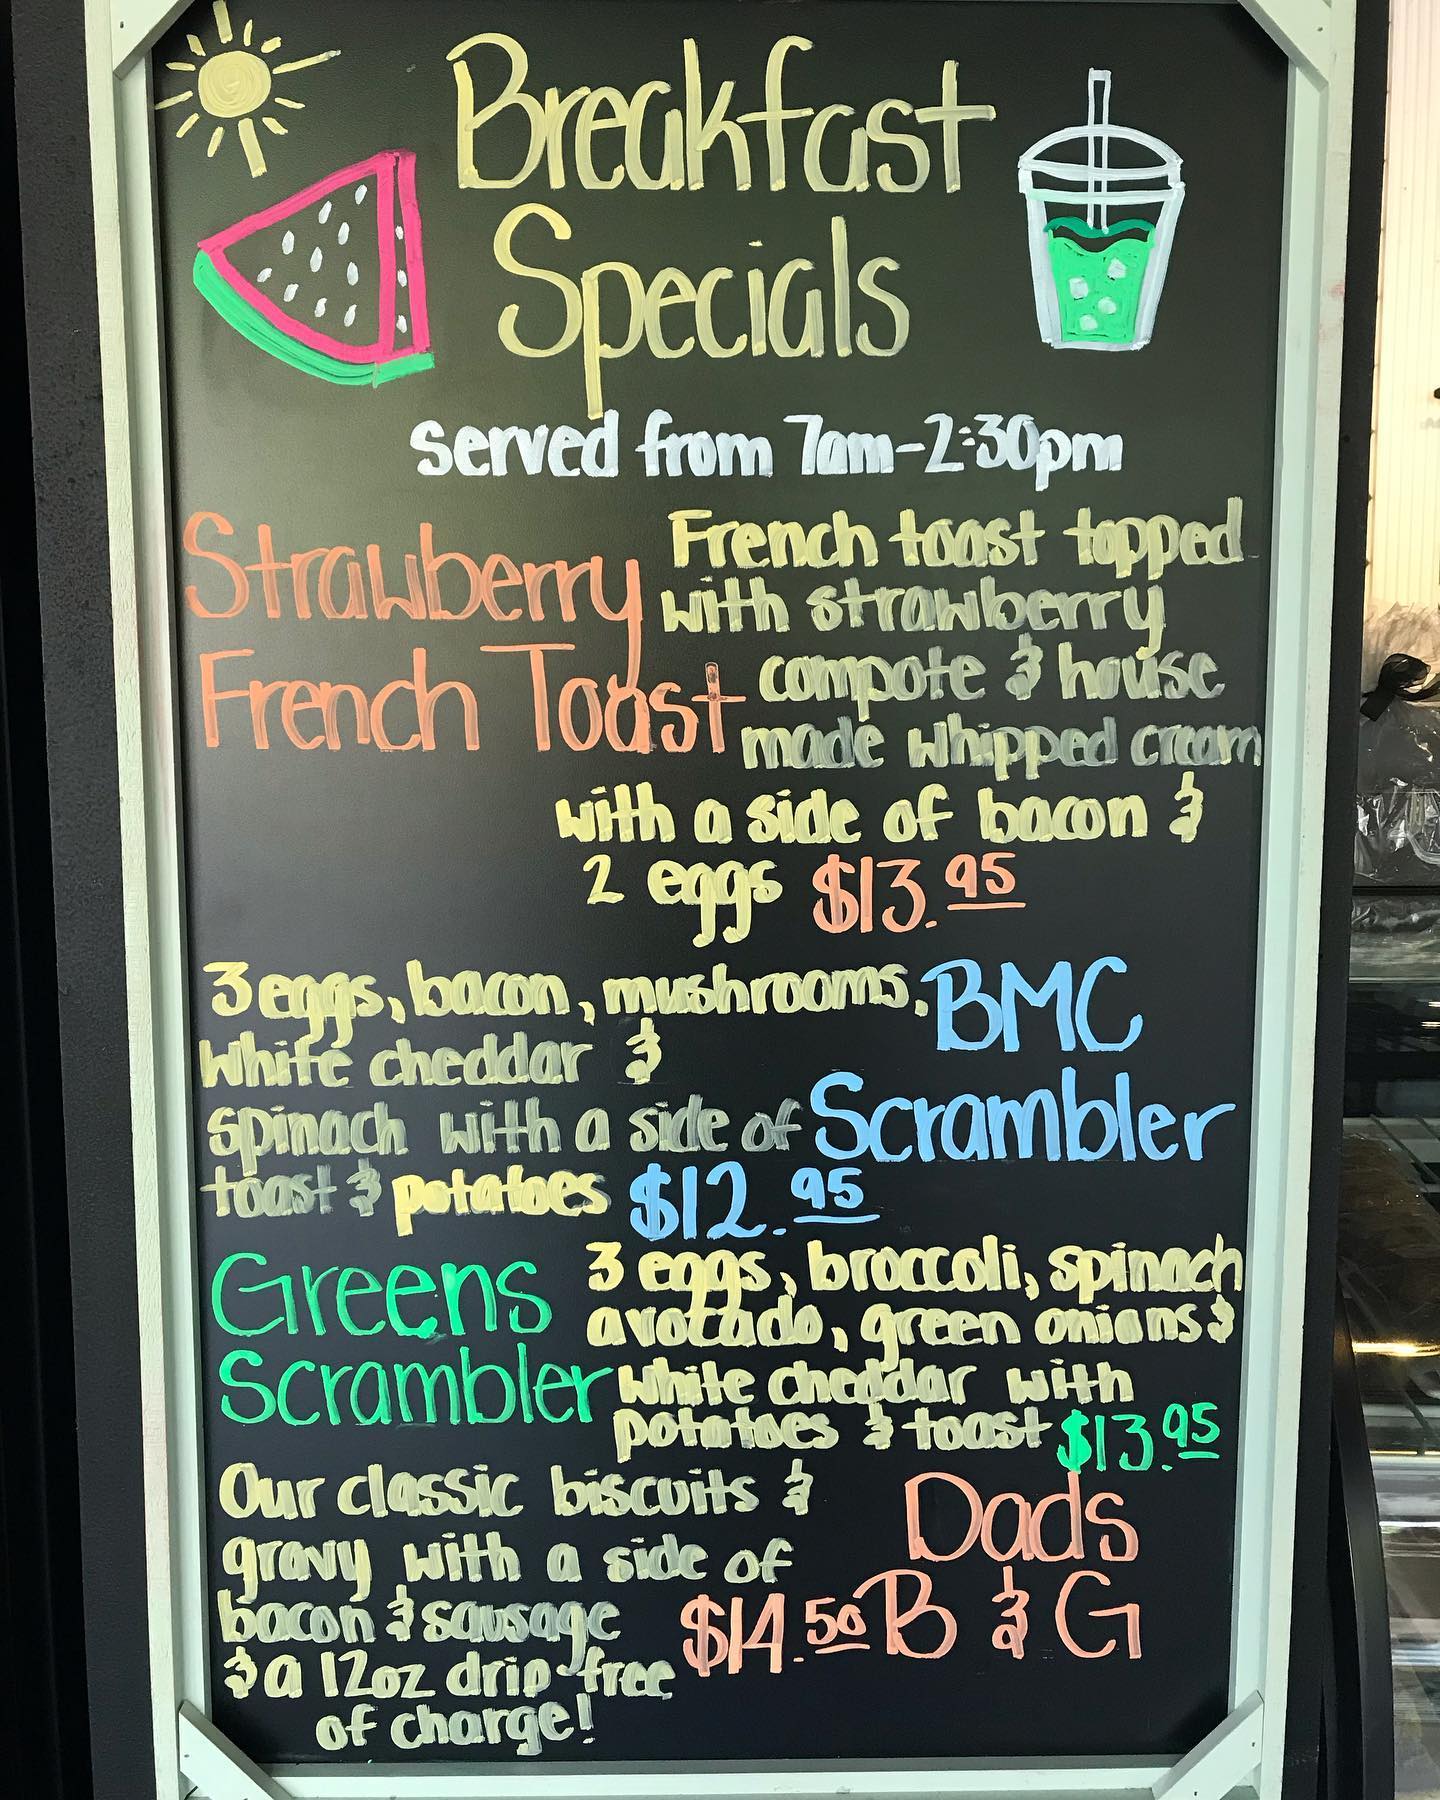 Breakfast
Specials
served from 7am-2:30pm
Strawberry
French Toast
French toast topped
with strawberry
compote & house
made whipped cream
with a side of bacon &
2 eggs $13.95
3 eggs, bacon, mushrooms,
white cheddar &
spinach with a side of
toast & potatoes
BMC
Scrambler
$12.95
Greens
Scrambler
3 eggs, broccoli, spinach
avocado, green onions &
white cheddar with
potatoes & toast $13.95
Our classic biscuits &
gravy with a side of
bacon & sausage
& a 12oz drip free
of charge!
Dads
B & G
$14.50